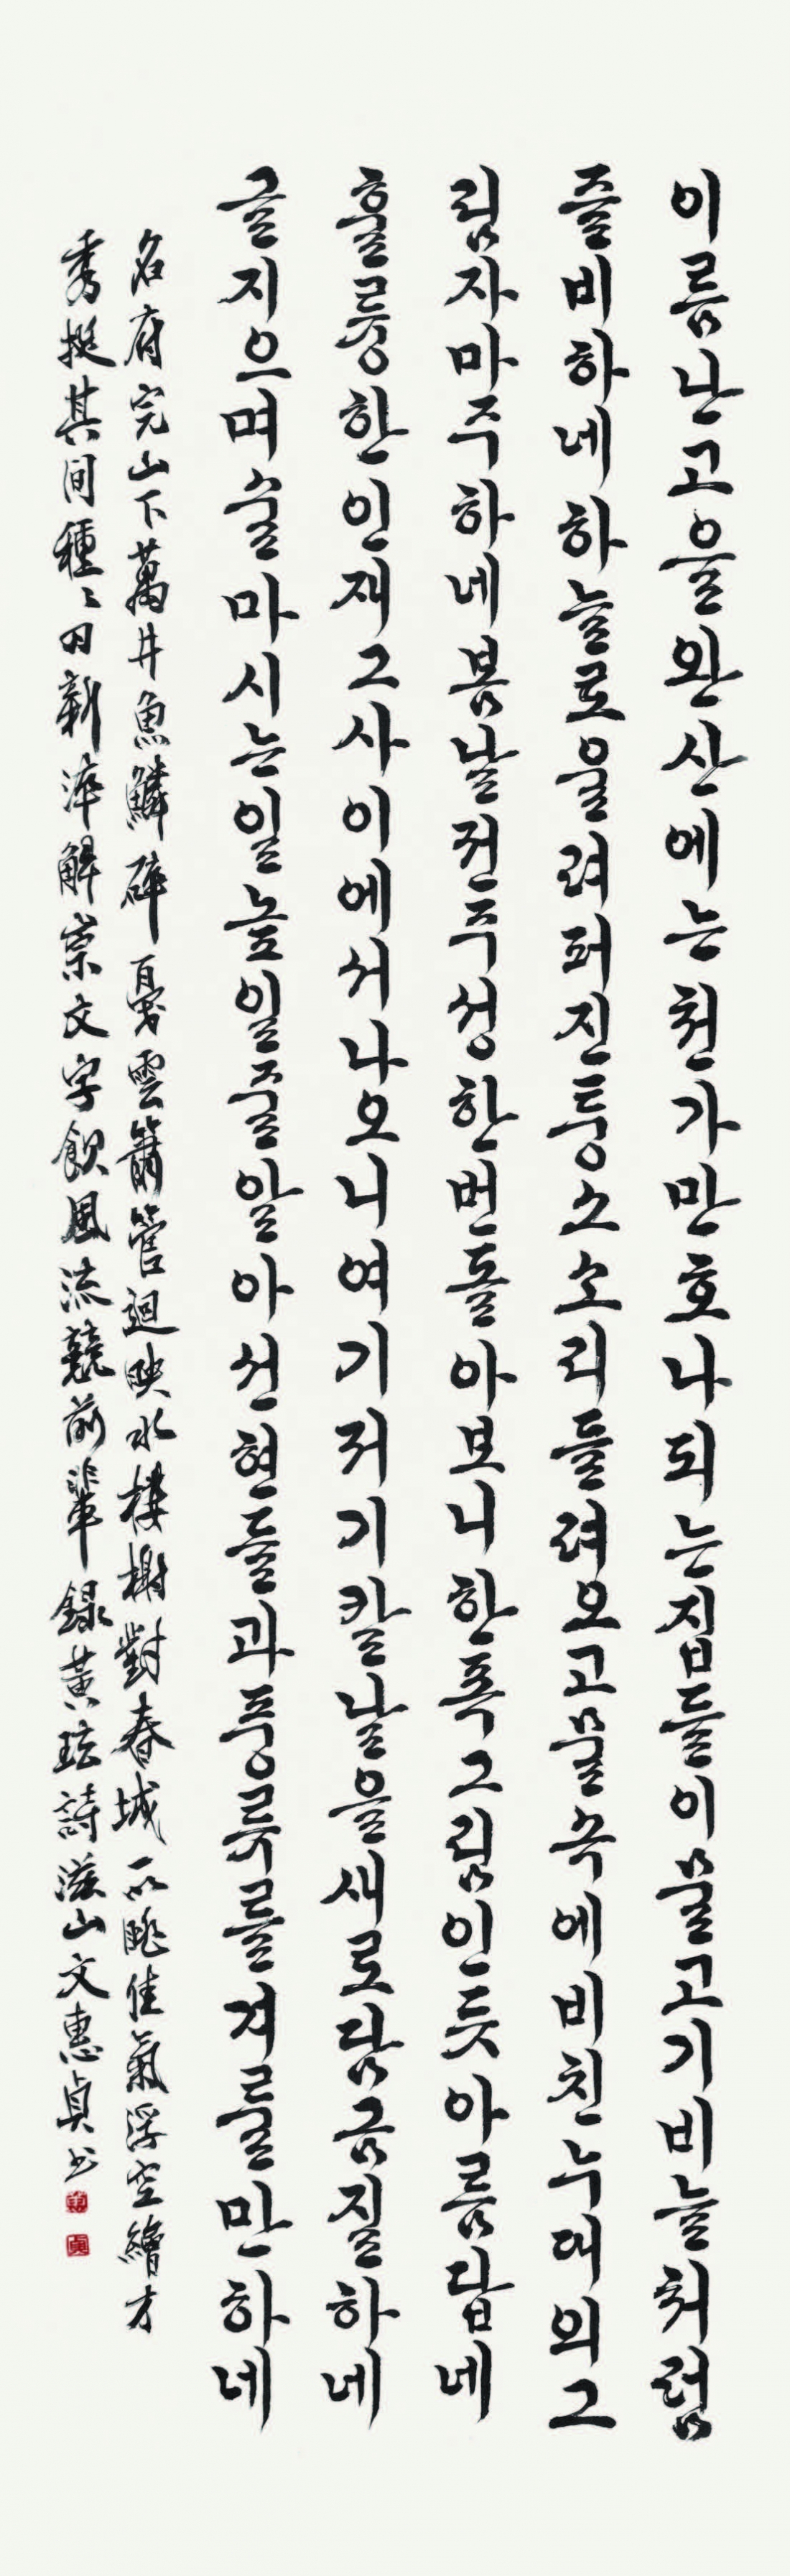 이름난고을완산에는천가만호나되는집들이물고기비늘처럼
즐비하네하늘로울려퍼진퉁소소리들려오고물속에비친누대의그
림자마주하네봄날전주성한번돌아보니한폭그림인듯아름답네
훌륭한인재그사이에서나오니여기저기칼날을새로담금질하네
글지으며술마시는일높일줄알아선현들과풍류를겨룰만하네
名府完山下萬井魚鱗碎戛雲簫管迴映水樓榭對春城一眺佳氣浮空繪才
秀挺其間種〻刃新淬解崇文字飲風流競前輩錄黃玹詩滋山文惠貞书